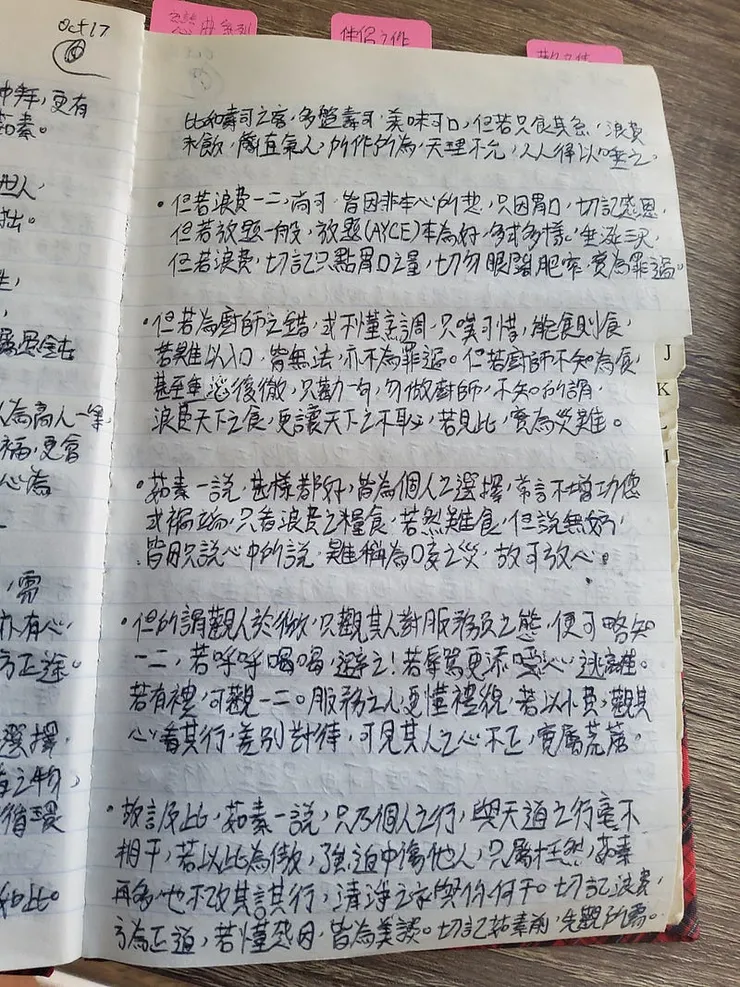 Oct 17
戀曲系列
伴侶之作
冲拜,更有
茹素。
世人,
拙。
人為高人一等,
禍,更會
心為
,需
亦有心,
方正途。
選擇,
之物,
循環
如此。
比如壽司之客,多盤壽司,美味可口,但若只食其魚,浪費
米飯,簡直氣人,所作所為,天理不允,人人得以唾之。
• 但若浪費一二,尚可,皆因非本心所想,只因胃口,切記感恩,
但若放題一般,放題(AYCE)本為好,多式多樣,垂涎三尺,
但若浪費,切記只點胃口之量,切勿眼闊肚窄,實為罪過。
• 但若為廚師之錯,或不懂烹調,只嘆可惜,能食則食,
若難以入口,皆無法,亦不為罪過。但若廚師不知為食,
甚至毫悔,只勸一句,勿做廚師,不知所謂,
浪費天下之食,更讓天下之不恥,若見此,實為災難。
• 茹素一說,甚樣都好,皆為個人之選擇,常言不增功德
或禍端,只看浪費之糧食,若然難食,但說無妨,
皆因只說心中所說,難稱為口孽之災,故可放心。
• 但所謂觀人於微,只觀其人對服務員之態,便可略知
一二,若呼呼喝喝,避之!若辱罵更添噁心,逃離。
若有禮,可觀一二。服務之人更懂禮貌,若以小費,觀其
心看其行,差別對待,可見其人之心不正,實屬荒落。
• 故言及此,茹素一說,只乃個人之行,與天道之行毫不
相干,若以此為傲,強迫中傷他人,只屬枉然,茹素
再多,也不改其言其行,清淨之家與你何干。切記浪費,
方為正道,若懂感恩,皆為美談。切記茹素前,先觀所需。
J
K
L